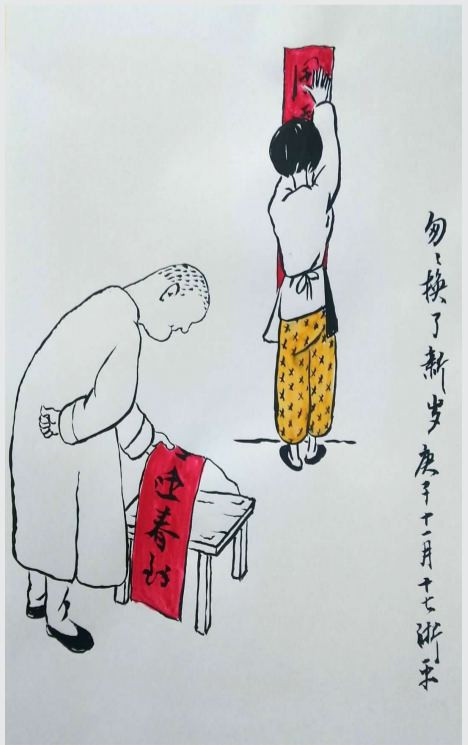 匆匆换了新岁 庚子十一月十七
迎春到